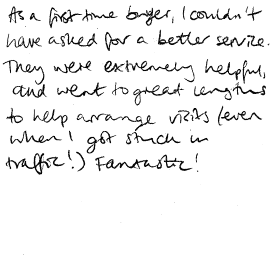 As a first time buyer, I couldn't
have asked for a better service.
They were extremely helpful,
and went to great lengths
to help arrange visits (even
when I got stuck in
traffic!) Fantastic!